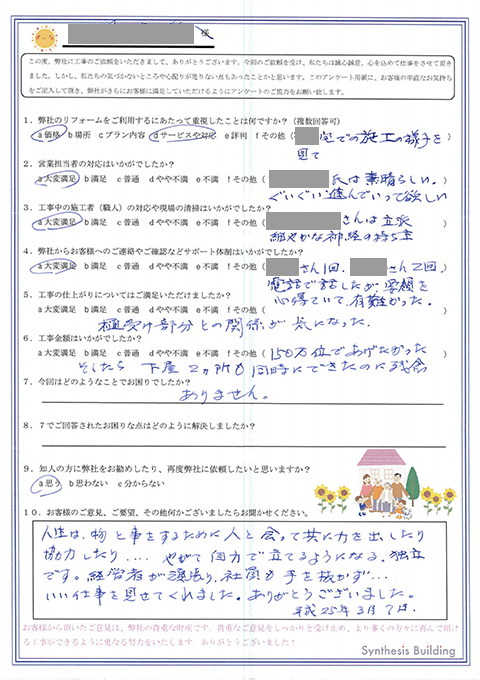 様
この度、弊社に工事のご依頼をいただきまして、ありがとうございます。今回のご依頼を受け、私たちは誠心誠意、心を込めて仕事をさせて頂き
ました。しかし、私たちの気づかないところや心配りが足りない点もあったことかと思います。このアンケート用紙に、お客様の率直なお気持ち
をご記入して頂き、弊社がさらにお客様に満足していただけるようにアンケートのご協力をお願い致します。
1．弊社のリフォームをご利用するにあたって重視したことは何ですか？（複数回答可）
a 価格 b 場所 c プラン内容 d サービスや対応 e 評判 f その他（ 宅での施工の様子を
見て ）
2．営業担当者の対応はいかがでしたか？
a 大変満足 b 満足 c 普通 d やや不満 e 不満 f その他（ 氏は素晴らしい。
ぐいぐい進んでいって欲しい ）
3．工事中の施工者（職人）の対応や現場の清掃はいかがでしたか？
a 大変満足 b 満足 c 普通 d やや不満 e 不満 f その他（ さんは立派
細やかな神経の持ち主 ）
4．弊社からお客様へのご連絡やご確認などサポート体制はいかがでしたか？
a 大変満足 b 満足 c 普通 d やや不満 e 不満 f その他（ さん1回、 さん2回
電話で話したが 掌握を
心得ていて、有難かった。 ）
5．工事の仕上がりについてはご満足いただけましたか？
a 大変満足 b 満足 c 普通 d やや不満 e 不満 f その他（
樋受け部分との関係が気になった。
6．工事金額はいかがでしたか？
a 大変満足 b 満足 c 普通 d やや不満 e 不満 f その他（ 150万位であげたかった ）
そしたら 下屋2ヵ所も同時にできたのに残念
7．今回はどのようなことでお困りでしたか？
ありません。
8．7でご回答されたお困りな点はどのように解決しましたか？
9．知人の方に弊社をお勧めしたり、再度弊社に依頼したいと思いますか？
a 思う b 思わない c 分からない
10．お客様のご意見、ご要望、その他何かございましたらお聞かせください。
人生は、物と事をするために人と会って共に力を出したり
協力したり‥‥ やがて自力で立てるようになる、独立
です。経営者が頑張り、社員も手を抜かず‥‥
いい仕事を見せてくれました。ありがとうございました。
平成25年3月7日.
お客様から頂いたご意見は、弊社の貴重な財産です。貴重なご意見をしっかりと受け止め、より多くの方々に喜んで頂け
る工事ができるように更なる努力をいたします。ありがとうございました！
Synthesis Building